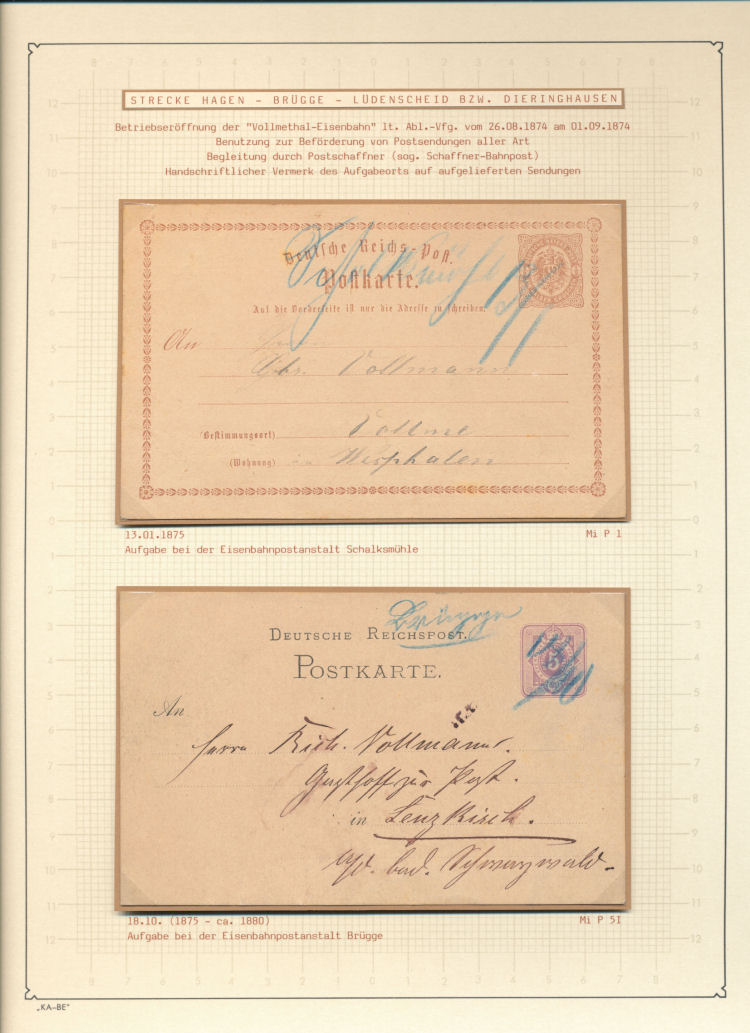 STRECKE HAGEN - BRÜGGE - LÜDENSCHEID BZW. DIERINGHAUSEN
Betriebseröffnung der "Vollmethal-Eisenbahn" lt. Abl.-Vfg. vom 26.08.1874 am 01.09.1874
Benutzung zur Beförderung von Postsendungen aller Art
Begleitung durch Postschaffner (sog. Schaffner-Bahnpost)
Handschriftlicher Vermerk des Aufgabeorts auf aufgelieferten Sendungen
Deutsche Reichs-Post.
Postkarte.
Auf die Vorderseite ist nur die Adresse zu schreiben.
An
Gbr. Vollmann
Bestimmungsort) Vollme
(Wohnung) Westphalen
13.01.1875 Mi P 1
Aufgabe bei der Eisenbahnpostanstalt Schalksmühle
Brügge
DEUTSCHE REICHSPOST.
POSTKARTE.
An
Herrn Rich. Vollmann.
Gasthoff zur Post.
in Lenzkirch.
bad. Schwarzwald.
18.10. (1875 - ca. 1880) Mi P 5I
Aufgabe bei der Eisenbahnpostanstalt Brügge
„KA-BE"